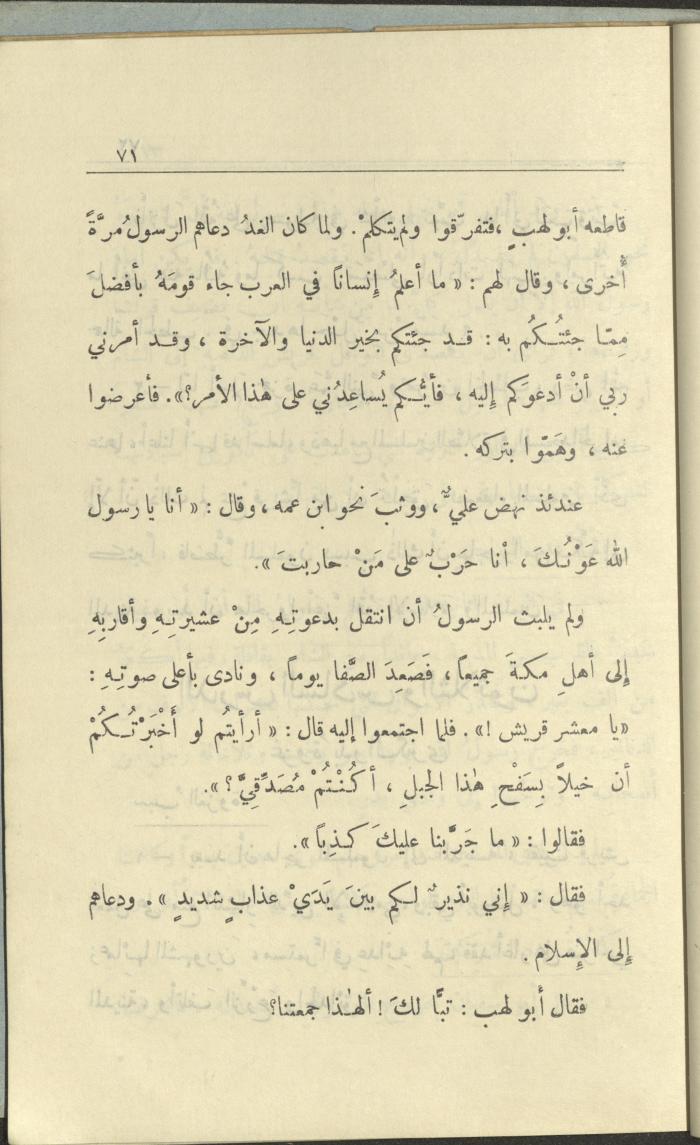 ٧١
قاطعه أبو لهبٍ ،فتفرّقوا ولم يتكلمْ . ولما كان الغدُ دعاهم الرسولُ مرَّةً
أُخرى ، وقال لهم : « ما أعلمُ إنساناً في العرب جاء قومَهُ بأفضلَ
مِمّا جئتُـكُم به : قـد جئتكم بخير الدنيا والآخرة ، وقـد أمرني
ربي أنْ أدعوَكم إليه ، فأيُّـكم يُساعِدُني على هٰذا الأمر ؟» . فأعرضوا
عنه ، وهَمّوا بتركه .
عندئذ نهض عليٌّ ، ووثبَ نحو ابن عمه ، وقال : « أنا يا رسول
الله عَوْنُـكَ ، أنا حَرْبٌ على مَنْ حاربتَ » .
ولم يلبث الرسولُ أن انتقل بدعوتِـهِ مِنْ عشيرتِـهِ وأقاربِهِ
إلى أهلِ مكـةَ جميعاً ، فَصَعِدَ الصَّفا يوماً ، ونادى بأعلى صوتِـهِ :
«يا معشر قريش !» . فلما اجتمعوا إليه قال : « أرأيتُم لو أَخْبَرْتُـكُمْ
أن خيلاً بِسَفْحِ هٰذا الجبلِ ، أكُـنْـتُمْ مُصَدِّقِيَّ ؟ » .
فقالوا : « ما جَرَّبنا عليكَ كـذِباً » .
فقال : « إني نذيرٌ لـكم بينَ يَدَيْ عذابٍ شديدٍ » . ودعاهم
إلى الإسلام .
فقال أبو لهب : تبًّا لكَ ! ألهٰـذا جمعتنا؟